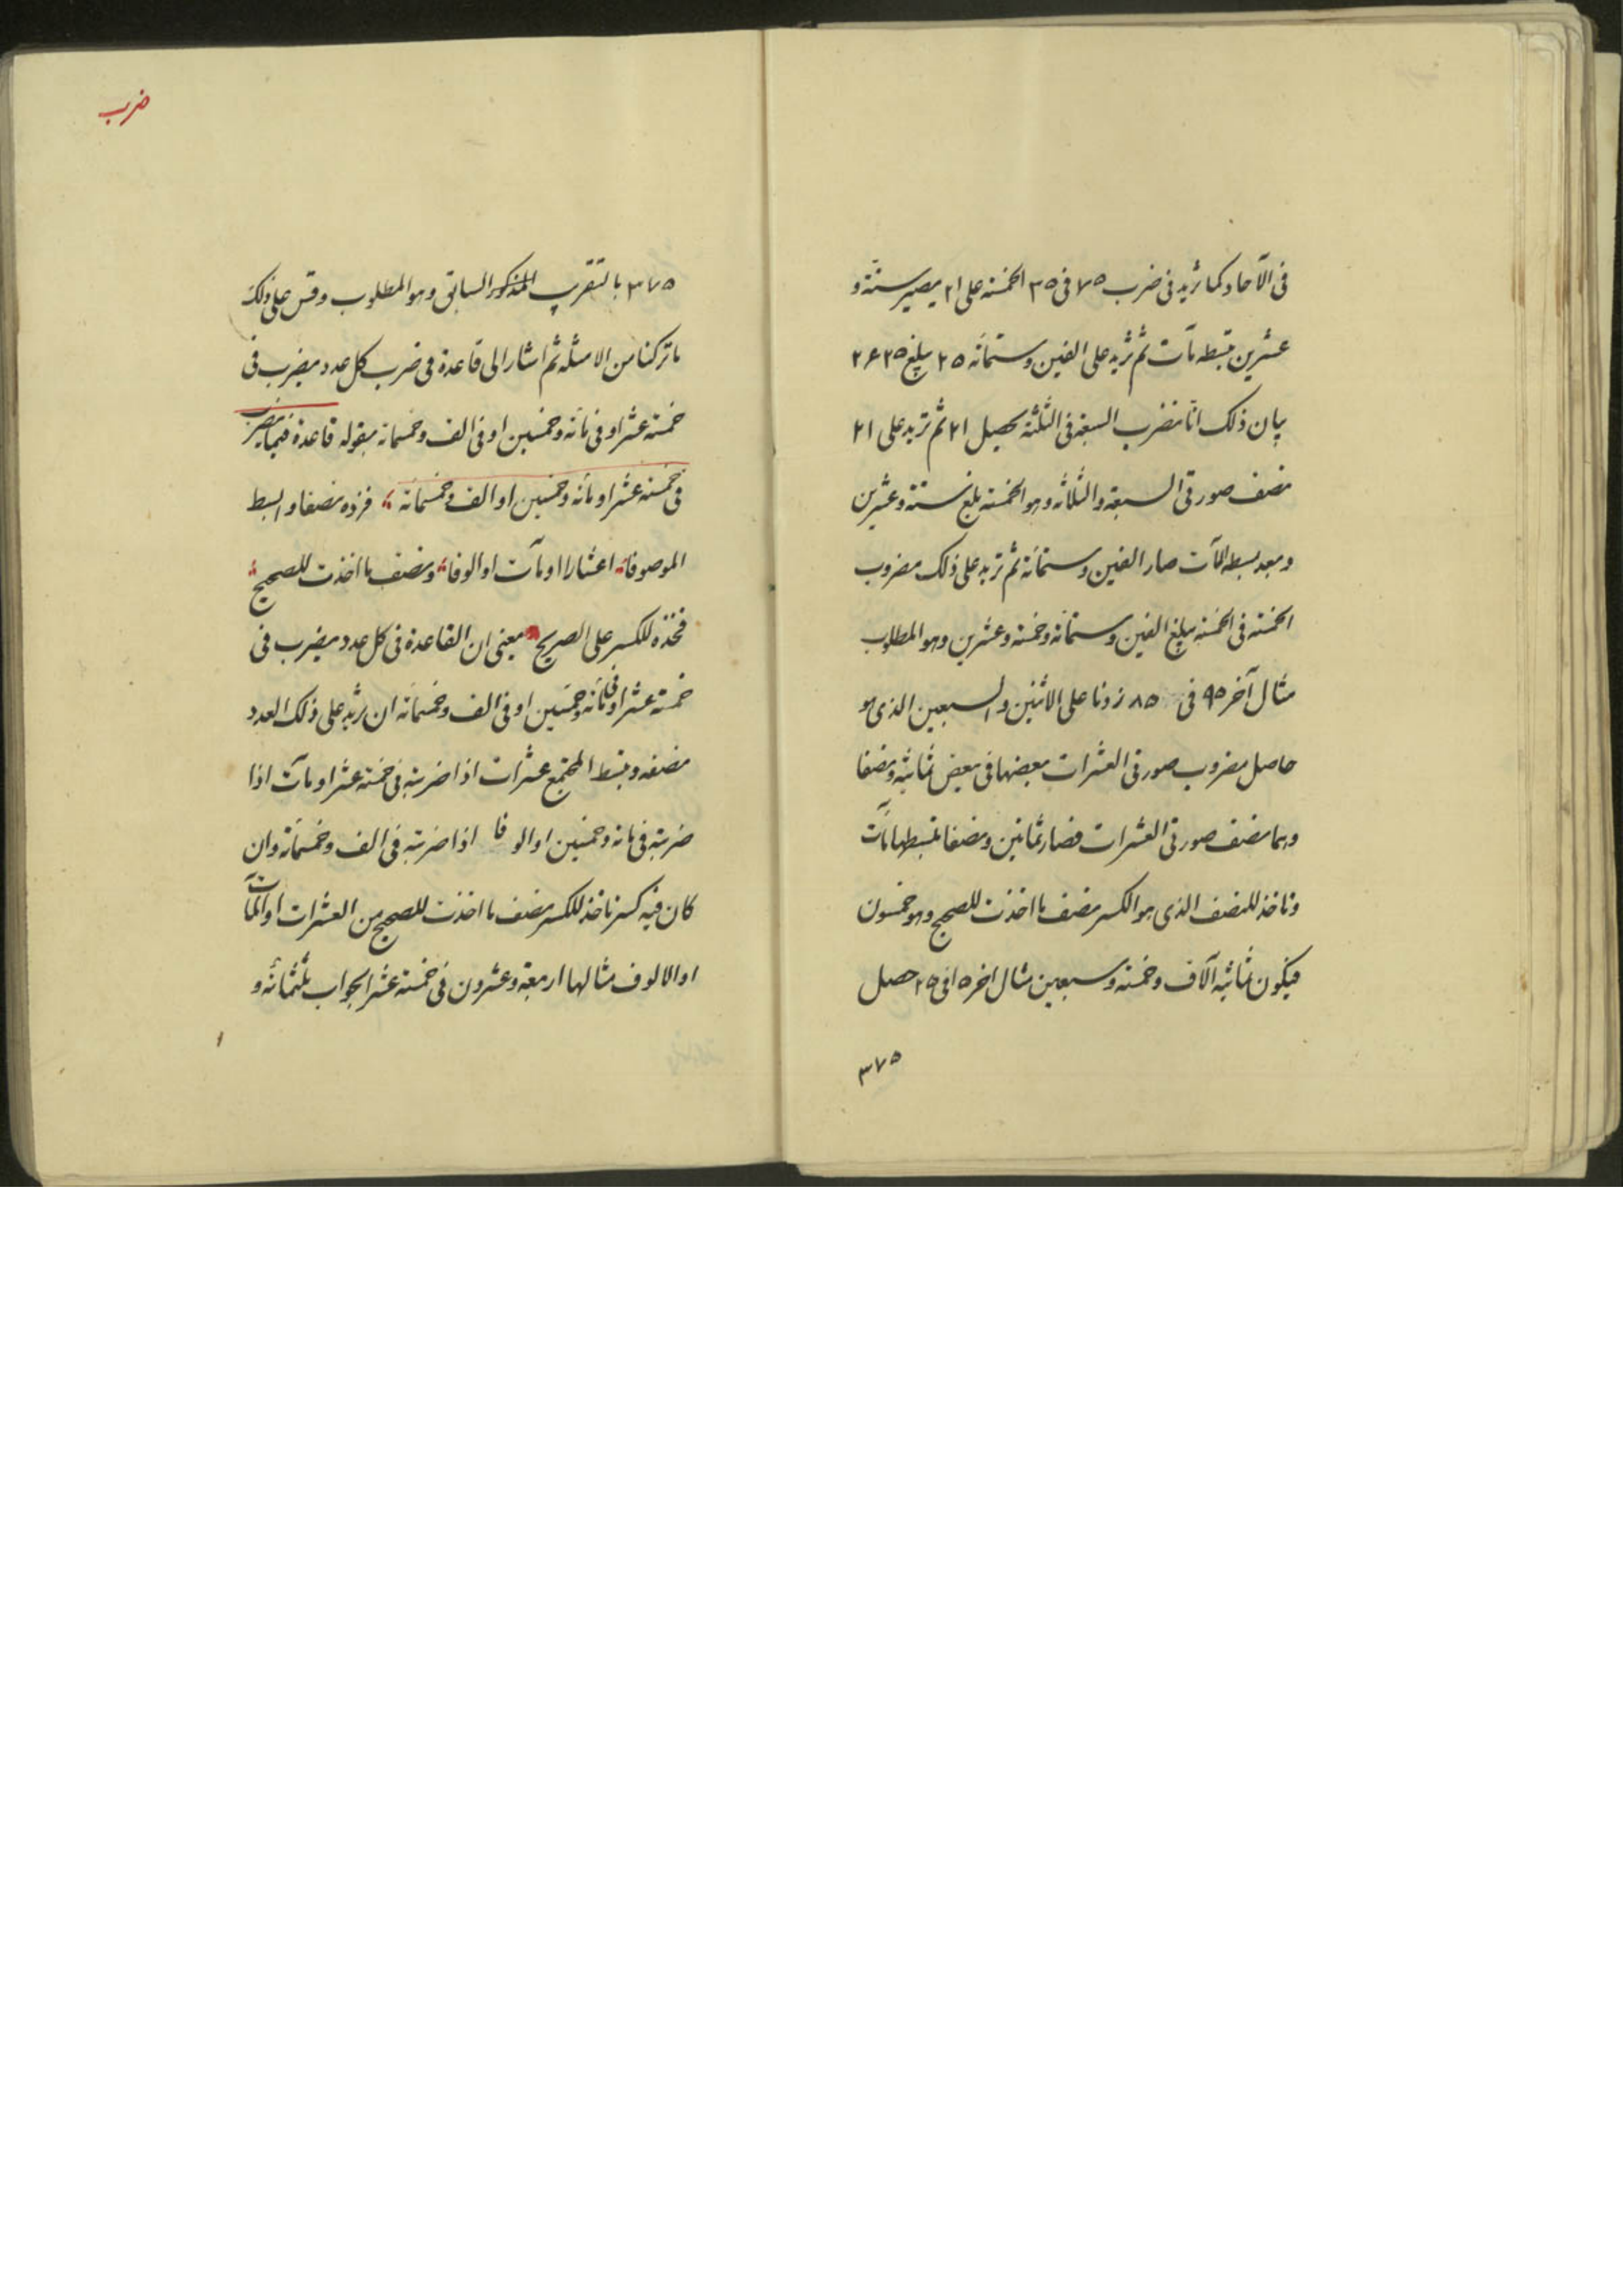 فى الآحاد كما تزيد فى ضرب ٧٥ فى ٣٥ الخمسة على ٢١ يصير ستة و
عشرين تبسطه مآت ثم تزيد على الفين وستمائه ٢٥ يبلغ ٢٦٢٥
بيان ذلك انا نضرب السبعة فى الثلثة يحصل ٢١ ثم تزيد على ٢١
نصف صورتى السبعة والثلاثة وهو الخمسة بلغ ستة وعشرين
وبعد بسطه المآت صار الفين وستمائة ثم تزيد على ذلك مضروب
الخمسة فى الخمسة يبلغ الفين وستمائة وخمسة وعشرين وهو المطلوب
مثال آخر ٩٥ فى ٨٥ زدنا على الاثنين والسبعين الذى هو
حاصل مضروب صورتى العشرات بعضها فى بعض ثمانية ونصفا
وهما نصف صورتى العشرات فصار ثمانين ونصفا تبسطها مآت
وناخذ للنصف الذى هو الكسر نصف ما اخذت للصحيح وهو خمسون
فيكون ثمانية آلاف وخمسة وسبعين مثال اخر ١٥ فى ٢٥ حصل
٣٧٥
ضرب
٣٧٥ بالتقريب المذكور السابق وهو المطلوب وقس على ذلك
ما تركنا من الامثله ثم اشار الى قاعدة فى ضرب كل عدد يضرب فى
خمسة عشر او فى مائه وخمسين او فى الف وخمسمائة بقوله قاعدة فيما يضرب
فى خمسة عشر او مائه وخمسين او الف وخمسمائة فزده نصفا وابسط
الموصوفات اعشارا او مآت او الوفا ونصف ما اخذت للصحيح
فخذه للكسر على الصريح يعنى ان القاعدة فى كل عدد يضرب فى
خمسة عشر او فى مائه وخمسين او فى الف وخمسمائة ان تزيد على ذلك العدد
نصفه وتبسط المجتمع عشرات اذا ضربته فى خمسة عشر او مآت اذا
ضربته فى مائه وخمسين او الوفا اذا ضربته فى الف وخمسمائة وان
كان فيه كسر ناخذ للكسر نصف ما اخذت للصحيح من العشرات او المآت
او الالوف مثالها اربعة وعشرون فى خمسة عشر الجواب ثلثمائة و